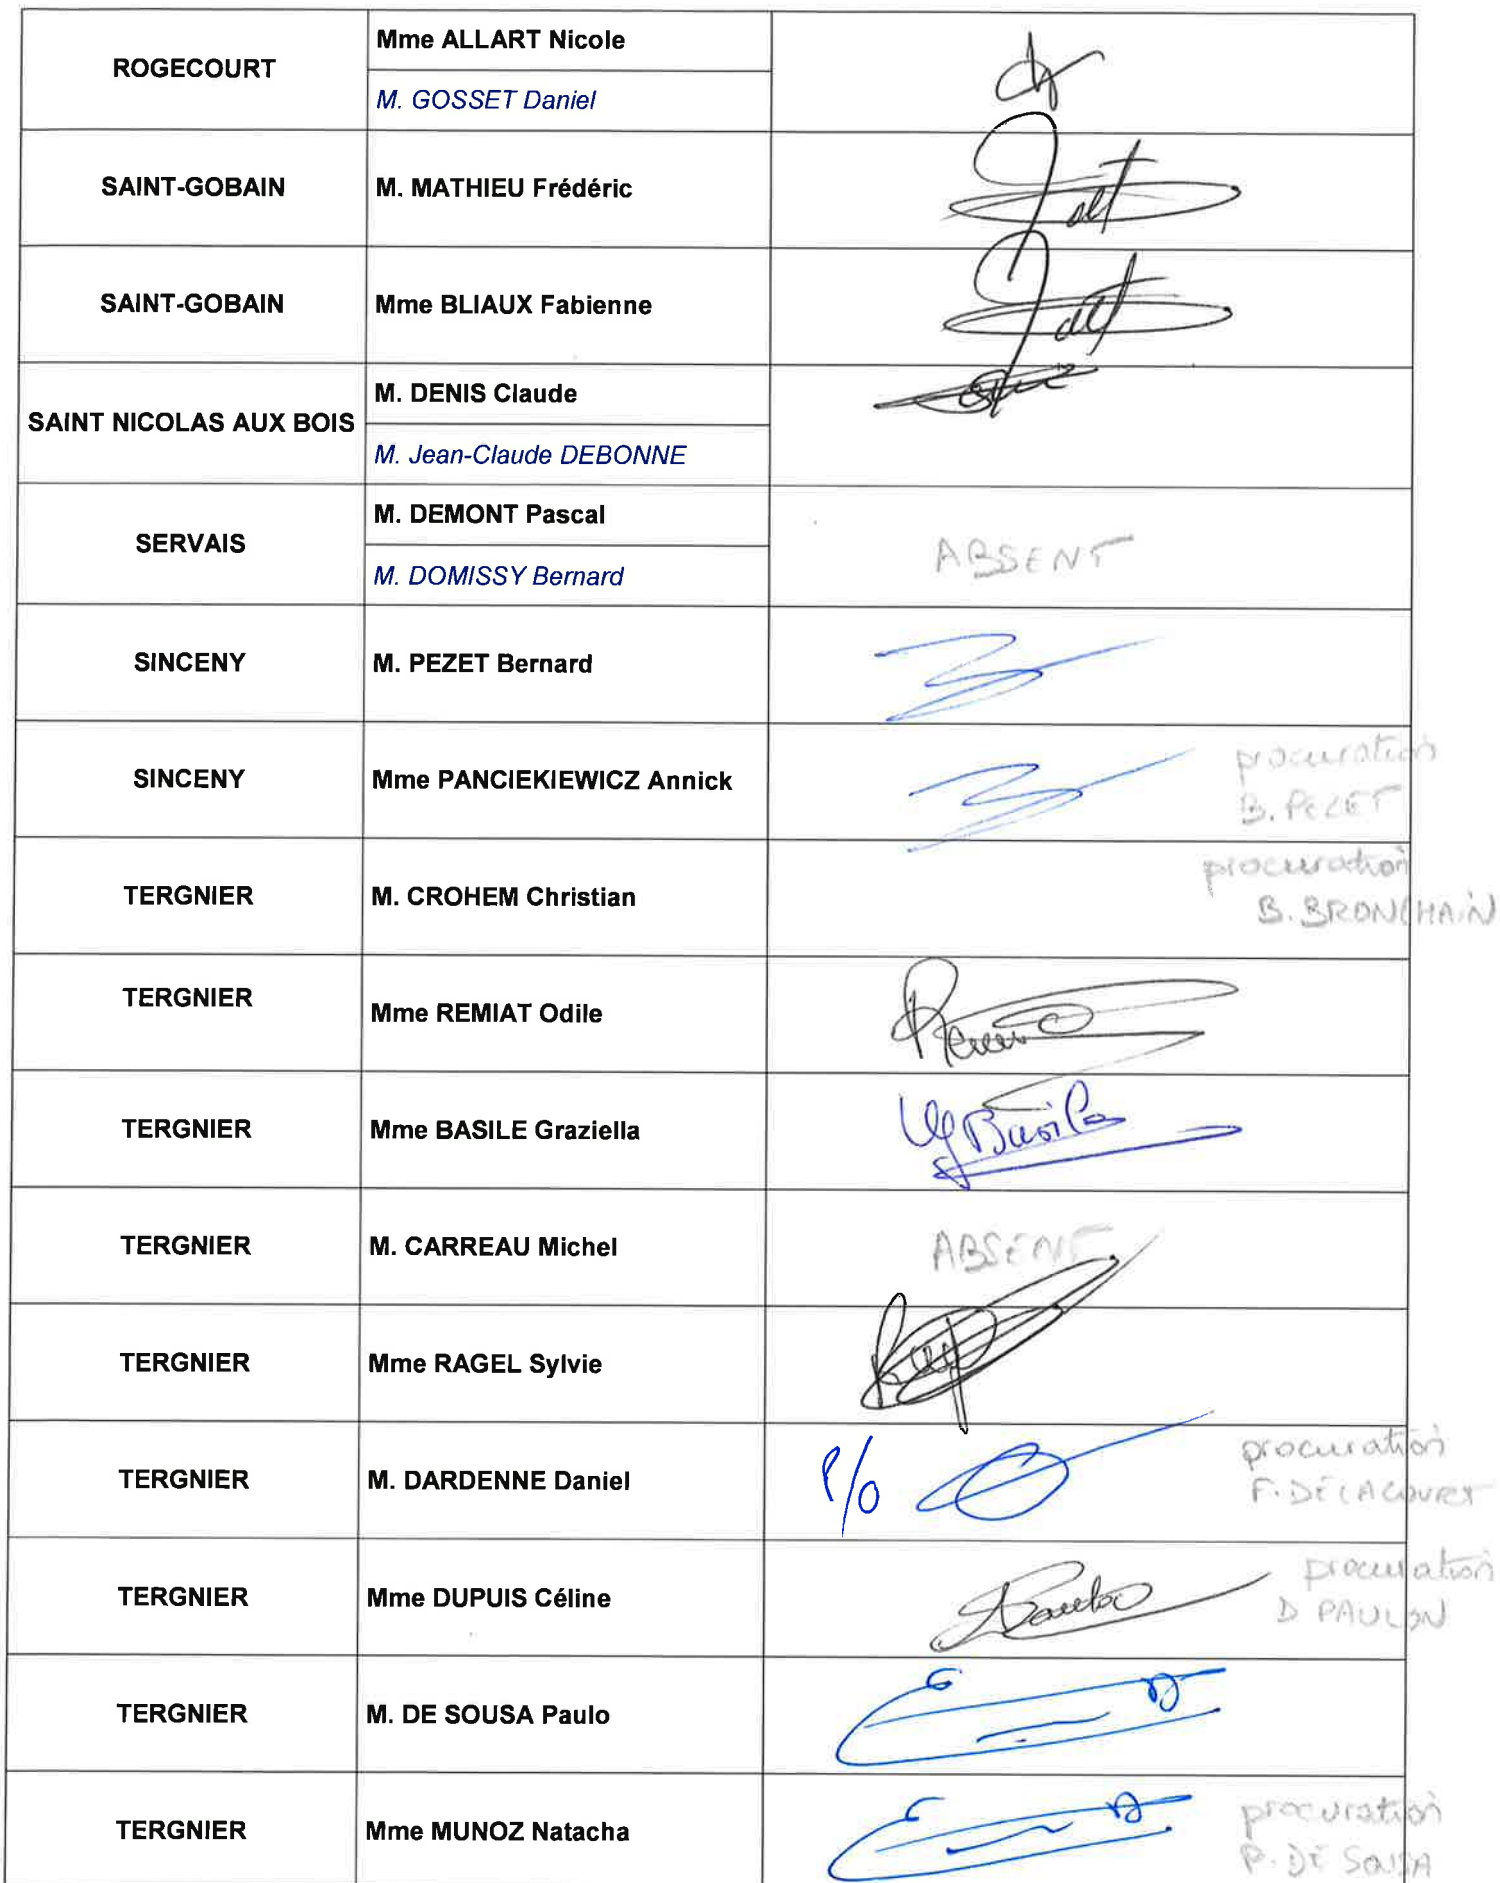 ROGECOURT
Mme ALLART Nicole
M. GOSSET Daniel
SAINT-GOBAIN
M. MATHIEU Frédéric
SAINT-GOBAIN
Mme BLIAUX Fabienne
SAINT NICOLAS AUX BOIS
M. DENIS Claude
M. Jean-Claude DEBONNE
SERVAIS
M. DEMONT Pascal
M. DOMISSY Bernard
ABSENT
SINCENY
M. PEZET Bernard
SINCENY
Mme PANCIEKIEWICZ Annick
procuration
B. PEZET
TERGNIER
M. CROHEM Christian
procuration
B. BRONCHAIN
TERGNIER
Mme REMIAT Odile
TERGNIER
Mme BASILE Graziella
Basile
TERGNIER
M. CARREAU Michel
ABSENT
TERGNIER
Mme RAGEL Sylvie
TERGNIER
M. DARDENNE Daniel
P/O
procuration
F. DELACOURT
TERGNIER
Mme DUPUIS Céline
procuration
D PAULON
TERGNIER
M. DE SOUSA Paulo
TERGNIER
Mme MUNOZ Natacha
procuration
P. DE SOUSA